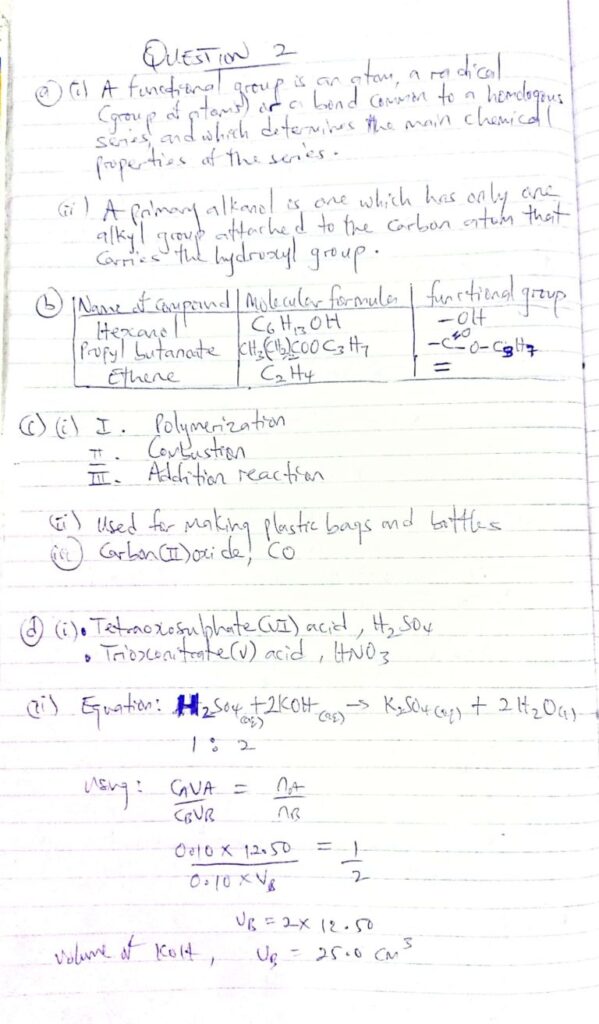 QUESTION 2
(a) (i) A functional group is an atom, a radical
(group of atoms) or a bond common to a homologous
series, and which determines the main chemical
properties of the series.
(ii) A primary alkanol is one which has only one
alkyl group attached to the carbon atom that
carries the hydroxyl group.
(b) Name of compound | Molecular formula | functional group
Hexanol | C6H13OH | -OH
Propyl butanoate | CH3(CH2)2COOC3H7 | -C=O-O-C3H7
Ethene | C2H4 | =
(c) (i) I. Polymerization
II. Combustion
III. Addition reaction
(ii) Used for making plastic bags and bottles
(iii) Carbon(II)oxide, CO
(d) (i) • Tetraoxosulphate(VI) acid, H2SO4
• Trioxonitrate(V) acid, HNO3
(ii) Equation: H2SO4(aq) + 2KOH(aq) → K2SO4(aq) + 2H2O(l)
1 : 2
Using: CAVA/CBVB = nA/nB
0.10 x 12.50/0.10 x VB = 1/2
VB = 2 x 12.50
Volume of KOH, VB = 25.0 cm3